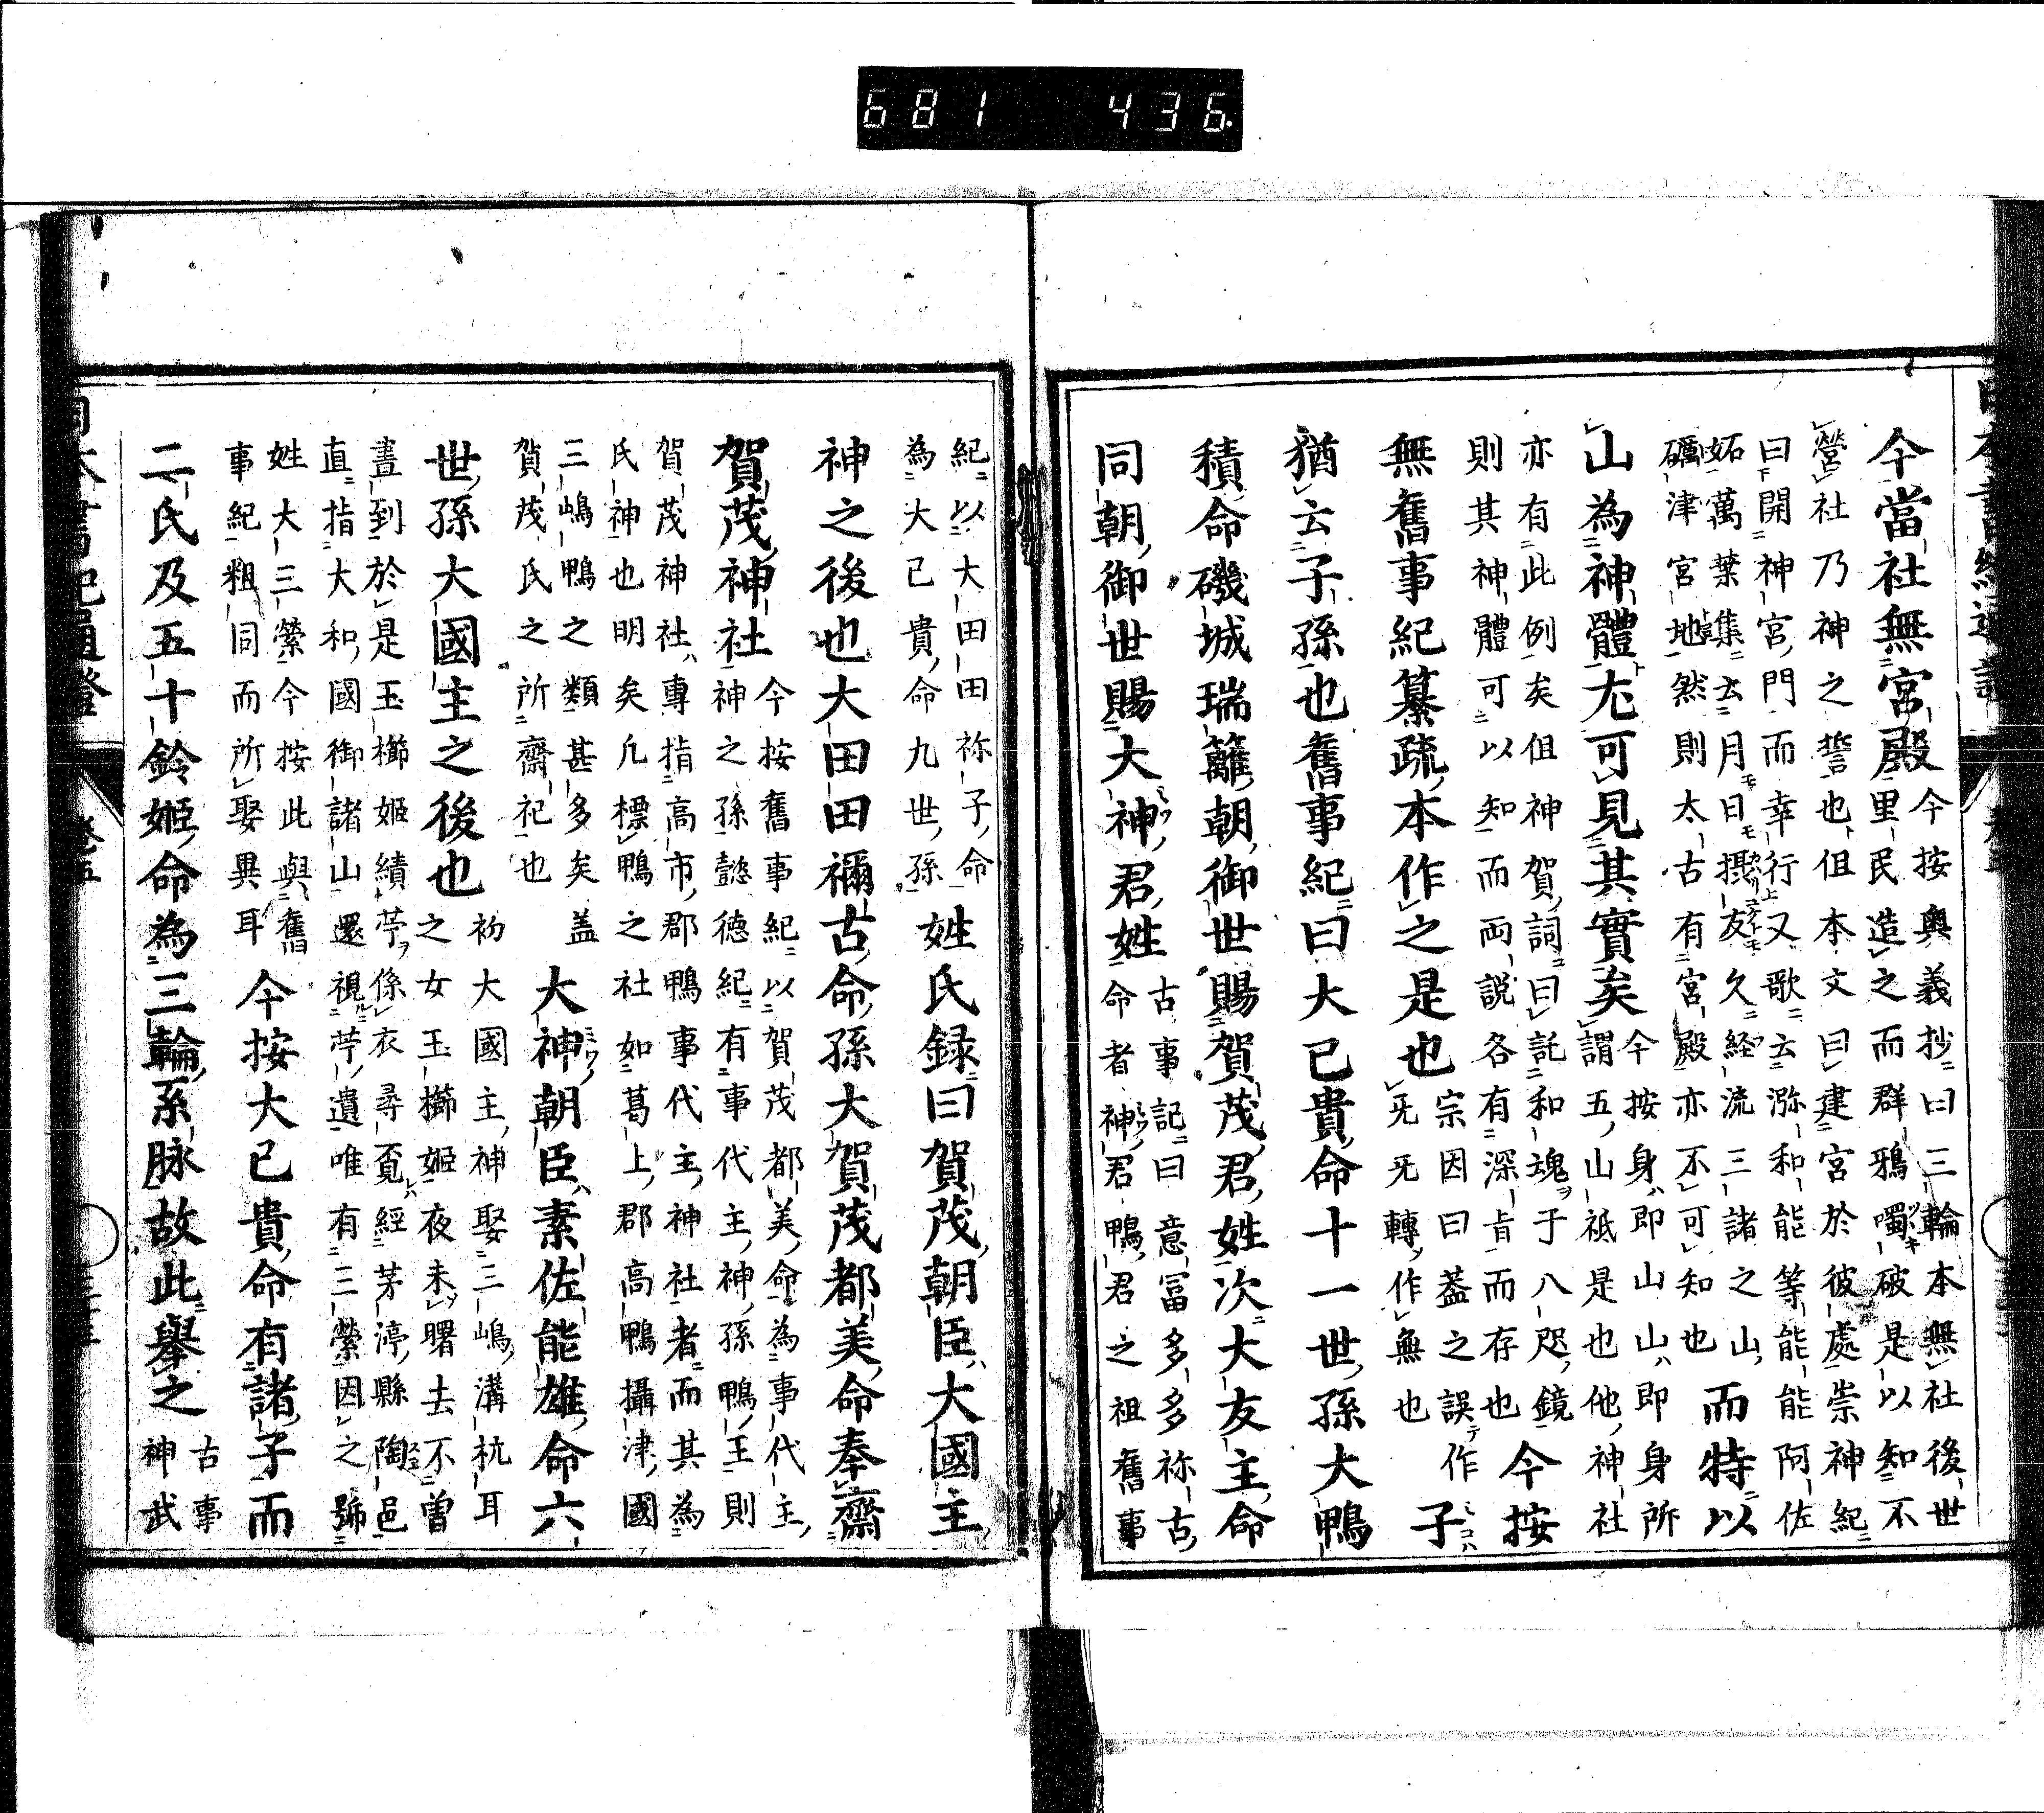 681 436
今當社無宮殿
今按奥義抄曰三輪本無社後世
里民造之而群鴉噣破是以知不
營社乃神之誓也但本文曰建宮於彼處崇神紀
曰開神宮門而幸行又歌云瀰和能等能能阿佐
妬萬葉集云月日攝友久経流三諸之山
礪津宮地然則太古有宮殿亦不可知也
而特以
山為神體尤可見其實矣
今按身即山山即身所
謂五山祗是也他神社
亦有此例矣但神賀詞曰託和魂于八咫鏡
則其神體可以知而両説各有深旨而存也
今按
無舊事紀纂疏本作之是也
宗因曰葢之誤作
旡旡轉作無也
子
猶云子孫也舊事紀曰大已貴命十一世孫大鴨
積命磯城瑞籬朝御世賜賀茂君姓次大友主命
同朝御世賜大神君姓
古事記曰意冨多多祢古
命者神君鴨君之祖舊事
紀以大田田祢子命
為大已貴命九世孫
姓氏録曰賀茂朝臣大國主
神之後也大田田禰古命孫大賀茂都美命奉齋
賀茂神社
今按舊事紀以賀茂都美命為事代主
神之孫懿德紀有事代主神孫鴨王則
賀茂神社專指高市郡鴨事代主神社者而其為
氏神也明矣凢標鴨之社如葛上郡高鴨攝津國
三嶋鴨之類甚多矣盖
賀茂氏之所齋祀也
大神朝臣素佐能雄命六
世孫大國主之後也
初大國主神娶三嶋溝杭耳
之女玉櫛姬夜未曙去不曽
晝到於是玉櫛姬績苧係衣尋覔經茅渟縣陶邑
直指大和國御諸山還視苧遺唯有三縈因之號
姓大三縈今按此與舊
事紀粗同而所娶異耳
今按大已貴命有諸子而
二氏及五十鈴姬命為三輪系脉故此舉之
古事
神武